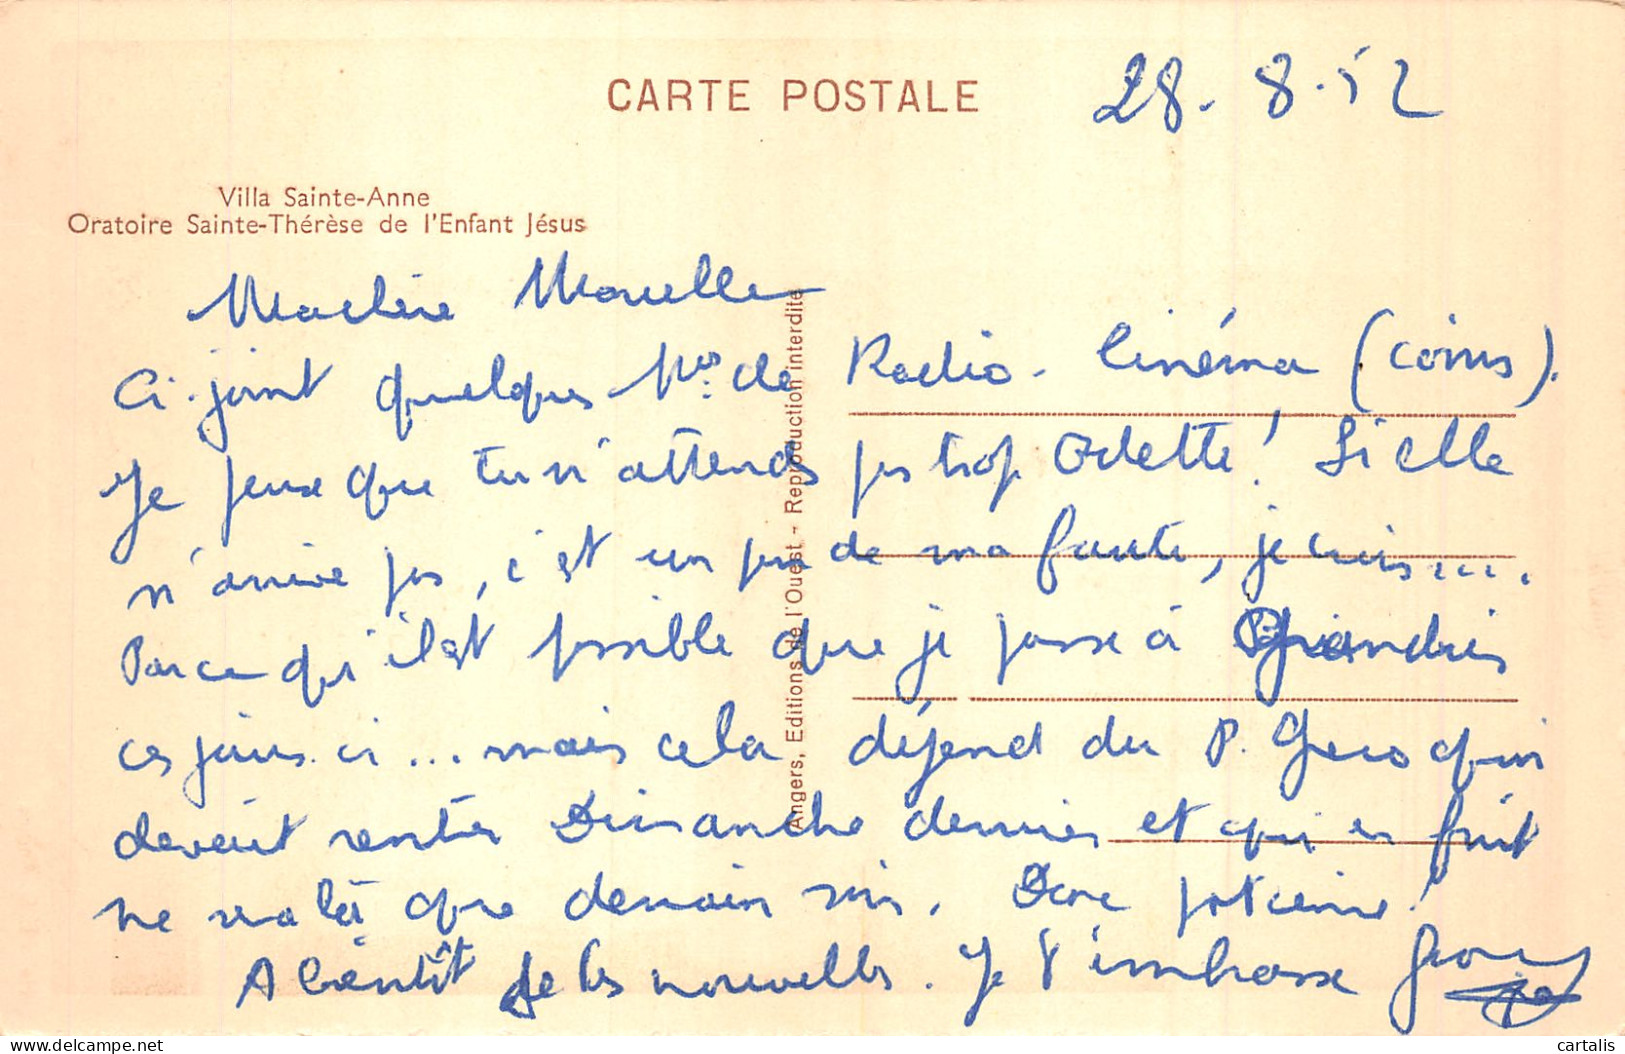 CARTE POSTALE
28-8-52
Villa Sainte-Anne
Oratoire Sainte-Thérèse de l'Enfant Jésus
Ma chère Marcelle
Ci-joint quelques Nos de Radio-Cinéma
Je pense que tu n'attends pas trop Odette! Si elle
n'arrive pas, c'est un peu de ma faute, je crois....
Parce qu'il est possible que je passe à
ces jours-ci... mais cela dépend du P. qui
devait rentrer Dimanche dernier et qui en fait
ne sera là que demain soir. Donc patience!
A bientôt de tes nouvelles. Je t'embrasse
Angers, Editions de l'Ouest - Reproduction interdite
cartalis